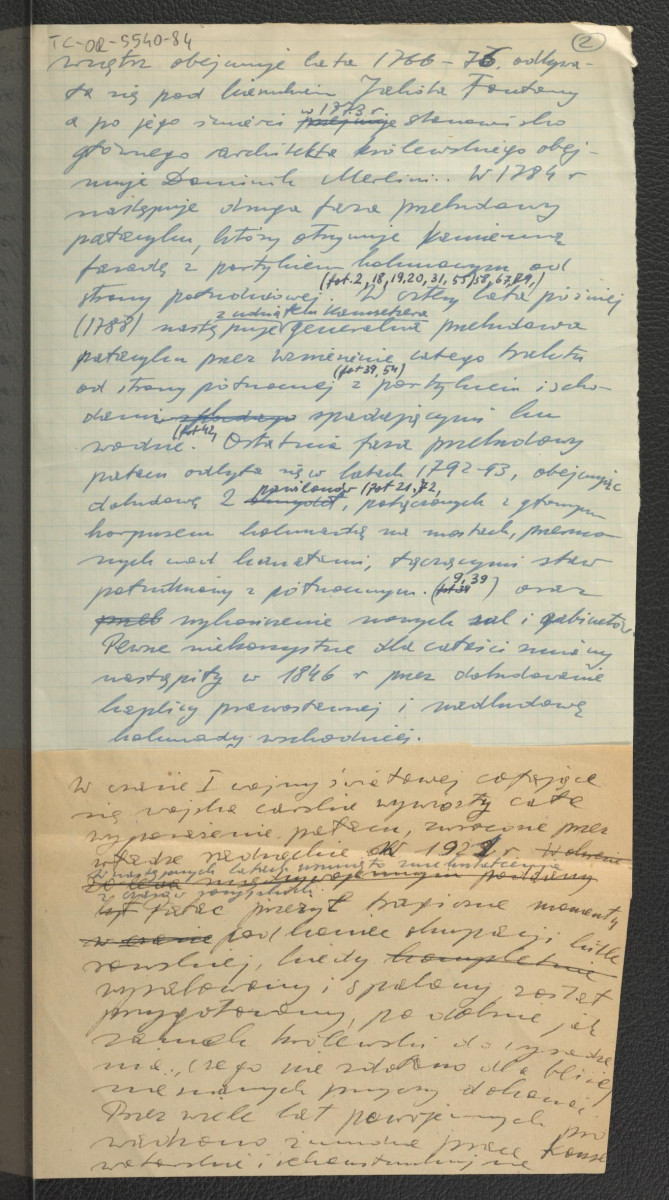 TC-OR-5540-84
2
wnętrz obejmuje lata 1766-76. odbywa-
ła się pod kierunkiem Jakuba Fontany
w 1773 r.
a po jego śmierci przejmuje stanowisko
głównego architekta królewskiego obej-
muje Dominik Merlini.. W 1784 r
następuje druga faza przebudowy
pałacyku, który otrzymuje kamienną
fasadę z portykiem kolumnowym od
(fot. 2, 18, 19, 20, 31, 55, 58, 67, 
strony południowej. W cztery lata później
z udziałem Kamsetzera
(1788) następuje generalna przebudowa
pałacyku przez wzniesienie całego traktu
(fot 39, 54)
od strony północnej z portykiem i scho-
dami spadającymi ku
(fot 42,
wodzie. Ostatnia faza przebudowy
pałacu odbyła się w latach 1792-93, obejmując
pawilonów (fot 21, 72,
dobudowę 2 , połączonych z głównym
korpusem kolumnadą na mostach, przerzuco-
nych nad kanałami, łączącymi staw
9, 39
południowy z północnym. (fot 34) oraz
wykończenie nowych sal i gabinetów.
Pewne niekorzystne dla całości zmiany
nastąpiły w 1846 r przez dobudowanie
kaplicy prawosławnej i nadbudowę
kolumnady wschodniej.
W czasie I wojny światowej cofające
się wojska carskie wywiozły całe
wyposażenie pałacu, zwrócone przez
władze radzieckie w 1921 r
W następnych latach usunięto zniekształcenia
z czasów rosyjskich
Pałac przeżył tragiczne momenty
w czasie pod koniec okupacji hitle
rowskiej, kiedy kompletnie
wypalowany i spalony został
przygotowany, podobnie jak
zamek królewski do wysadze
nia, czego nie zdołano dla bliżej
nieznanych przyczyn dokonać.
Przez wiele lat powojennych pro
wadzono żmudne prace konse
watorskie i rekonstrukcyjne